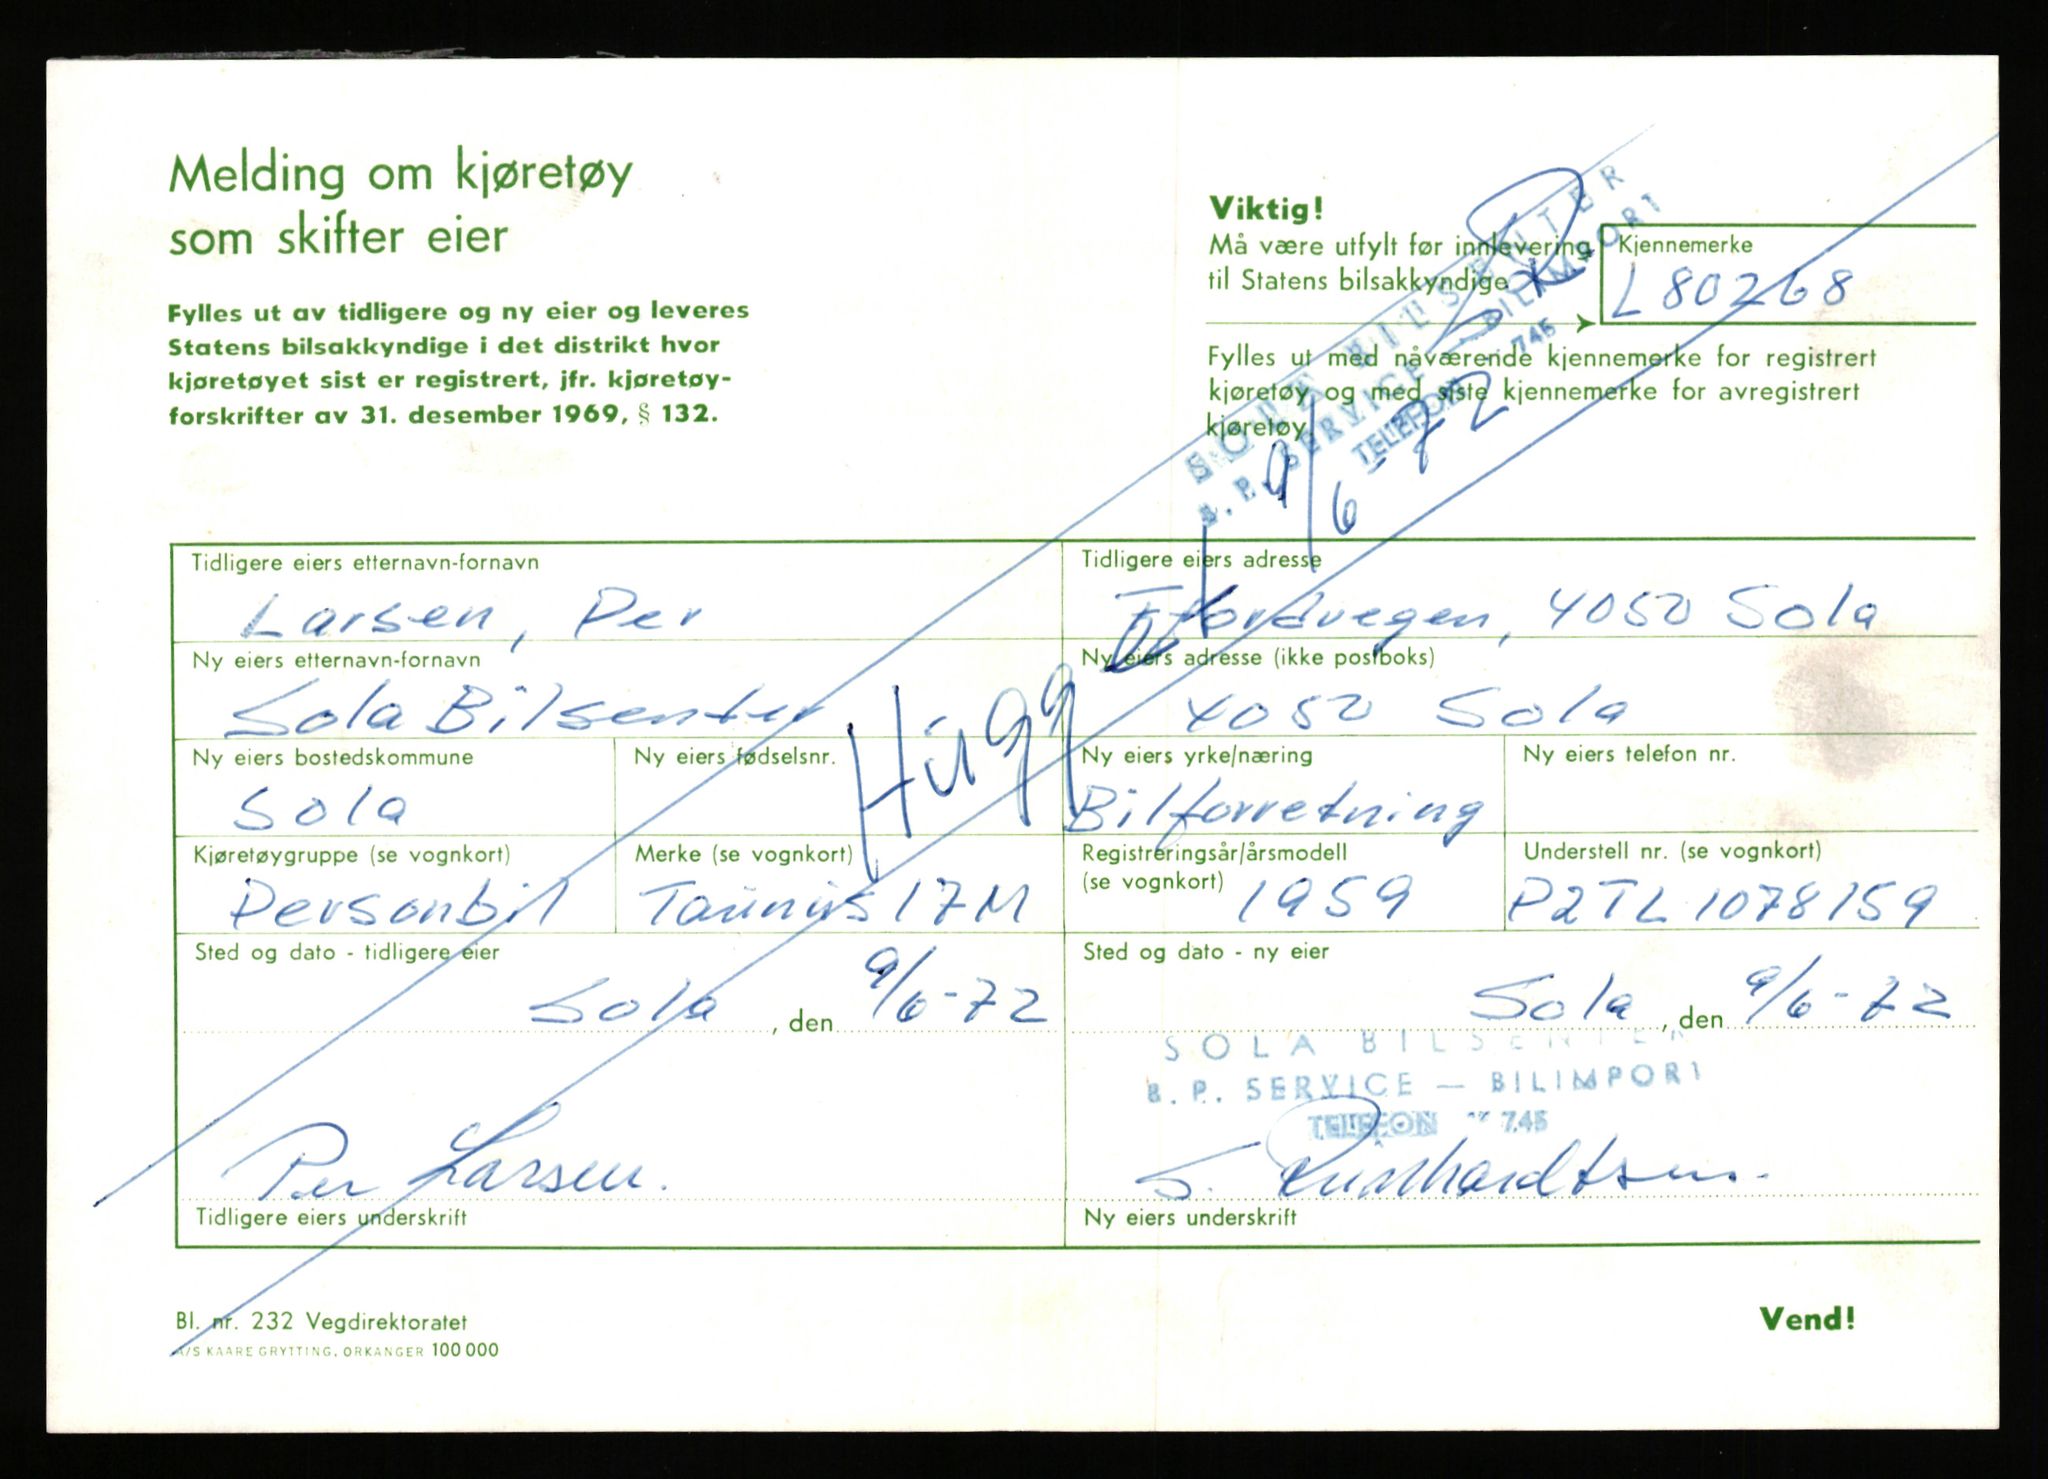 Melding om kjøretøy
som skifter eier
Fylles ut av tidligere og ny eier og leveres
Statens bilsakkyndige i det distrikt hvor
kjøretøyet sist er registrert, jfr. kjøretøy-
forskrifter av 31. desember 1969, § 132.
Viktig!
Må være utfylt før innlevering
til Statens bilsakkyndige
Kjennemerke
L 80268
Fylles ut med nåværende kjennemerke for registrert
kjøretøy og med siste kjennemerke for avregistrert
kjøretøy
SOLA BILSENTER
B.P. SERVICE - BILIMPORT
TELEFON 745
9/6-72
Hugget
Tidligere eiers etternavn-fornavn
Larsen, Per
Tidligere eiers adresse
Fjordvegen, 4050 Sola
Ny eiers etternavn-fornavn
Sola Bilsenter
Ny eiers adresse (ikke postboks)
4050 Sola
Ny eiers bostedskommune
Sola
Ny eiers fødselsnr.
Ny eiers yrke/næring
Bilforretning
Ny eiers telefon nr.
Kjøretøygruppe (se vognkort)
Personbil
Merke (se vognkort)
Taunus 17M
Registreringsår/årsmodell
(se vognkort)
1959
Understell nr. (se vognkort)
P2TL 1078159
Sted og dato - tidligere eier
Sola, den 9/6-72
Sted og dato - ny eier
Sola, den 9/6-72
SOLA BILSENTER
B.P. SERVICE — BILIMPORT
TELEFON 745
Per Larsen.
Tidligere eiers underskrift
S. Reinhardtsen.
Ny eiers underskrift
Bl. nr. 232 Vegdirektoratet
A/S KAARE GRYTTING, ORKANGER 100 000
Vend!